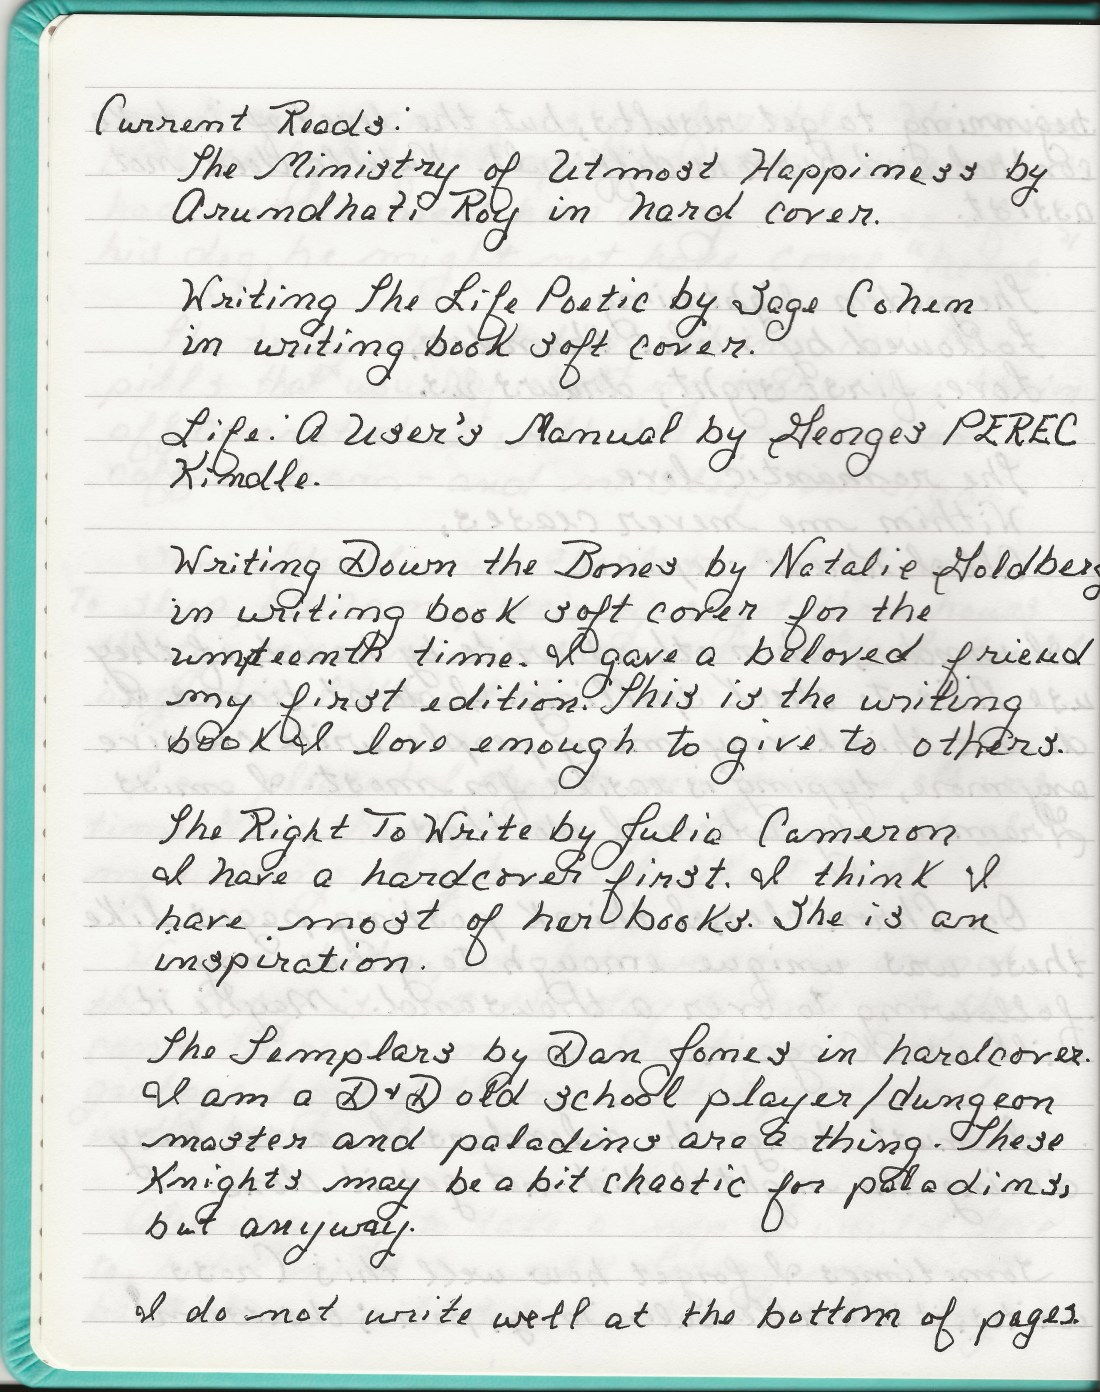 Current Reads:
The Ministry of Utmost Happiness by
Arundhati Roy in hard cover.
Writing The Life Poetic by Sage Cohen
in writing book soft cover.
Life: A User's Manual by Georges PEREC
Kindle.
Writing Down the Bones by Natalie Goldberg
in writing book soft cover for the
umpteenth time. I gave a beloved friend
my first edition. This is the writing
book I love enough to give to others.
The Right To Write by Julia Cameron
I have a hardcover first. I think I
have most of her books. She is an
inspiration.
The Templars by Dan Jones in hardcover.
I am a D&D old school player/dungeon
master and paladins are a thing. These
Knights may be a bit chaotic for paladins,
but anyway.
I do not write well at the bottom of pages.